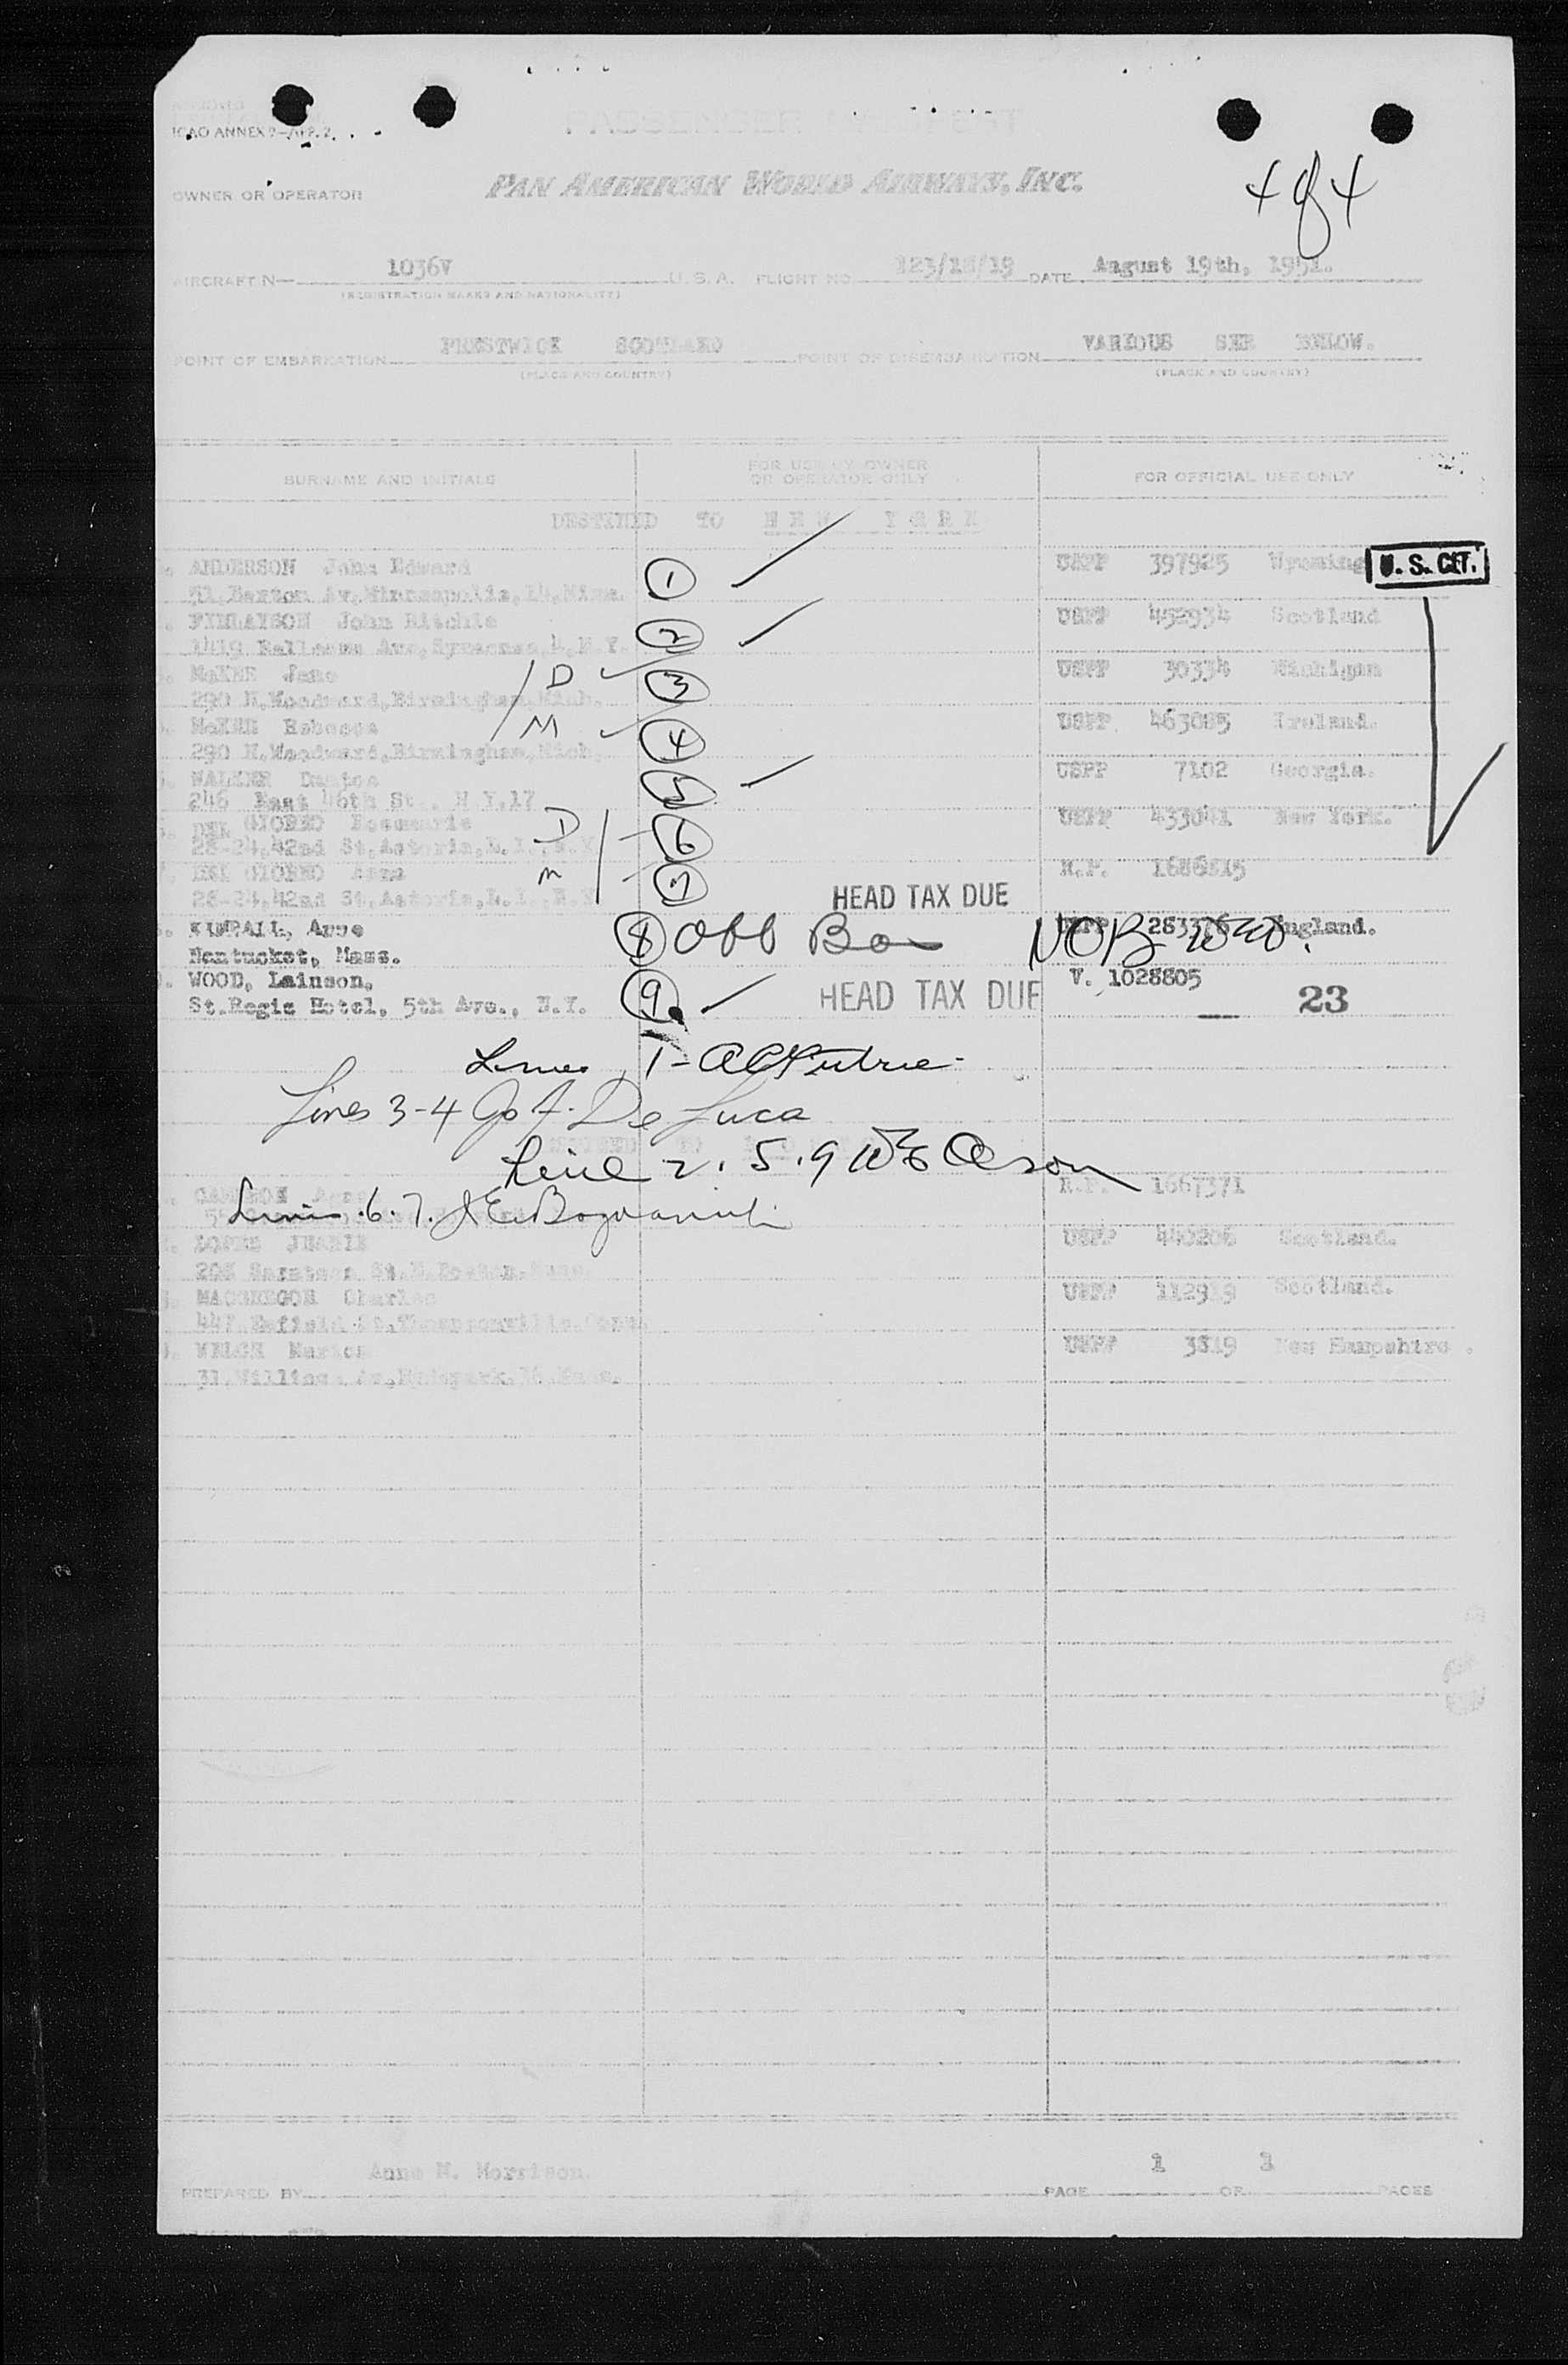 ICAO ANNEX 9-APP. 2
PASSENGER MANIFEST
4 of 4
OWNER OR OPERATOR PAN AMERICAN WORLD AIRWAYS, INC.
AIRCRAFT N— 1036V U. S. A. FLIGHT NO. 123/18/19 DATE August 19th, 1951.
(REGISTRATION MARKS AND NATIONALITY)
POINT OF EMBARKATION PRESTWICK SCOTLAND POINT OF DISEMBARKATION VARIOUS SEE BELOW.
(PLACE AND COUNTRY) (PLACE AND COUNTRY)
SURNAME AND INITIALS FOR USE BY OWNER OR OPERATOR ONLY FOR OFFICIAL USE ONLY
DESTINED TO NEW YORK
ANDERSON John Edward 1 USPP 397925 Wyoming U. S. CIT.
51, Barton Av, Minneapolis, 14, Minn.
FINLAYSON John Ritchie 2 USPP 452934 Scotland
1419 Bellevue Ave, Syracuse, 4, N.Y.
McKEE Jane D 3 USPP 30334 Michigan
290 N, Woodward, Birmingham, Mich.
McKEE Rebecca M 4 USPP 463085 Ireland.
290 N, Woodward, Birmingham, Mich.
WALKER Danton 5 USPP 7102 Georgia.
246 East 46th St., N Y, 17
DEL GIORNO Rosemarie D 6 USPP 433041 New York.
28-24, 42nd St, Astoria, L.I., N.Y
DEL GIORNO Anna M 7 R.P. 1686815
28-24, 42nd St, Astoria, L.I., N.Y
HEAD TAX DUE
KIMBALL, Anne 8 USPP 283376 England.
NOB
Nantucket, Mass.
WOOD, Lainson, 9 HEAD TAX DUE V. 1028805
St. Regis Hotel, 5th Ave., N.Y. 23
Lines 1 -
Lines 3-4 De Luca
Line 2. 5. 9
CAMERON R.P. 1667371
Lines 6. 7.
LOPES JEANIE USPP 440206 Scotland.
208 Saratoga St, E. Boston, Mass.
MACGREGOR Charles USPP 112919 Scotland.
447, Enfield St, Thompsonville, Conn
WELCH Marion USPP 3819 New Hampshire.
31, Williams Av, Hydepark, 36, Mass.
Anne M. Morrison.
PREPARED BY PAGE 1 OF 1 PAGES